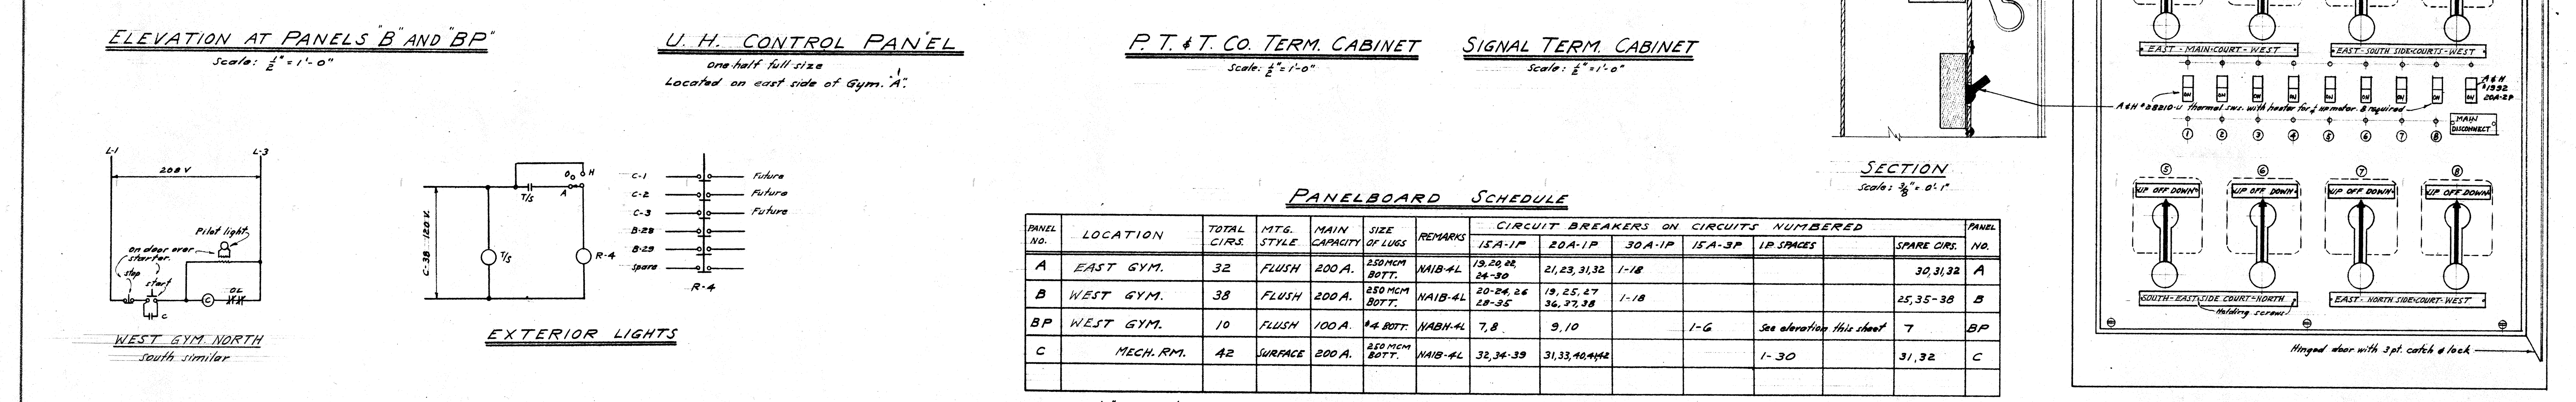 ELEVATION AT PANELS "B" AND "BP"
Scale: ½" = 1'-0"
U. H. CONTROL PANEL
one-half full size
Located on east side of Gym. "A".
P. T. & T. CO. TERM. CABINET
Scale: ½" = 1'-0"
SIGNAL TERM. CABINET
Scale: ½" = 1'-0"
L-1 L-3
208 V
Pilot light
on door over
starter.
stop
start
C OL
C
WEST GYM. NORTH
South similar
C-38 120V.
T/S O H
A
T/S
R-4
EXTERIOR LIGHTS
C-1 Future
C-2 Future
C-3 Future
B-28
B-29
Spare
R-4
SECTION
Scale: 3/8" = 0'-1"
PANELBOARD SCHEDULE
PANEL NO. LOCATION TOTAL CIRS. MTG. STYLE MAIN CAPACITY SIZE OF LUGS REMARKS CIRCUIT BREAKERS ON CIRCUITS NUMBERED PANEL NO.
15A-1P 20A-1P 30A-1P 15A-3P 1P. SPACES SPARE CIRS.
A EAST GYM. 32 FLUSH 200 A. 250 MCM BOTT. NAIB-4L 19,20,22, 24-30 21,23,31,32 1-18 30,31,32 A
B WEST GYM. 38 FLUSH 200 A. 250 MCM BOTT. NAIB-4L 20-24,26 28-35 19,25,27 36,37,38 1-18 25,35-38 B
BP WEST GYM. 10 FLUSH 100 A. #4 BOTT. NABH-4L 7,8 9,10 1-6 See elevation this sheet 7 BP
C MECH. RM. 42 SURFACE 200 A. 250 MCM BOTT. NAIB-4L 32,34-39 31,33,40,41,42 1-30 31,32 C
EAST - MAIN-COURT - WEST
EAST - SOUTH SIDE-COURTS - WEST
ON ON ON ON ON ON ON ON ON
A & H
#1992
20A-2P
A & H #28210-U thermal sws. with heater for ¼ HP motor. 8 required
1 2 3 4 5 6 7 8
MAIN
DISCONNECT
5 6 7 8
UP OFF DOWN UP OFF DOWN UP OFF DOWN UP OFF DOWN
SOUTH - EAST SIDE COURT - NORTH
EAST - NORTH SIDE-COURT - WEST
Holding screws
Hinged door with 3 pt. catch & lock